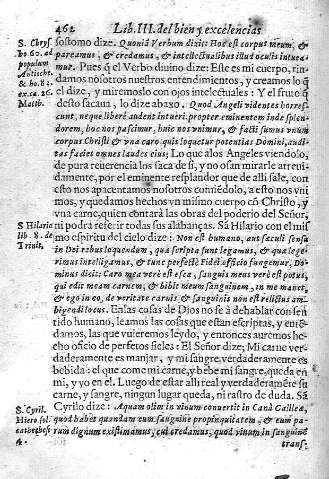 462 Lib. III. del bien y excelencias
S. Chrys.
ho. 60. ad
populum
Antioch.
& ho. 83.
ex ca. 26.
Matth.
sostomo dize. Quoniã Verbum dixit: Hoc est corpus meum, &
pareamus, & credamus, & intellectualibus illud oculis intuea-
mur. Pues q̃ el Verbo diuino dize: Este es mi cuerpo, rin-
damos nosotros nuestros entendimientos, y creamos lo
que el dize, y miremoslo con ojos intelectuales: Y el fruto q̃
desto sacaua, lo dize abaxo. Quod Angeli videntes horres-
cunt, neque liberè audent intueri propter eminentem inde splen-
dorem, hoc nos pascimur, huic nos vnimur, & facti sumus vnum
corpus Christi & vna caro quis loquetur potentias Domini, audi-
tas faciet omnes laudes eius; Lo que alos Angeles viendolo,
de pura reuerencia los saca de si, y no osan mirarle atreui-
damente, por el eminente resplandor que de alli sale, con
esto nos apacentamos nosotros comiẽdolo, a esto nos vni-
mos, y quedamos hechos vn mismo cuerpo cõ Christo, y
vna carne, quien contará las obras del poderio del Señor,
ni podra referir todas sus alabanças. Sã Hilario con el mis-
S. Hilario
lib. 8. de
Trinit.
mo espiritu del cielo dize: Non est humano, aut sæculi sensu
in Dei rebus loquendum, quæ scripta sunt legamus, & quæ lege-
rimus intelligamus, & tunc perfectè Fidei officio fungemur, Do-
minus dicit: Caro mea verè est esca, sanguis meus verè est potus,
qui edit meam carnem, & bibit meum sanguinem, in me manet,
& ego in eo, de veritate carnis & sanguinis non est relictus am-
bigendi locus. En las cosas de Dios no se à de hablar con sen-
tido humano, leamos las cosas que estan escriptas, y entẽ-
damos, las que vuieremos leydo, y entonces auremos he-
cho oficio de perfetos fieles: El Señor dize; Mi carne ver-
daderamente es manjar, y mi sangre verdaderamente es
bebida: el que come mi carne, y bebe mi sangre, queda en
mi, y yo en el. Luego de estar alli real y verdaderamẽte su
carne, y sangre, ningun lugar queda, ni rastro de duda. Sã
S. Cyril.
Hierosol.
catheches.
4.
Cyrilo dize: Aquam olim in vinum conuertit in Canà Galileæ,
quod habet quandam cum sanguine propinquitatem, & eum pa-
rum dignum existimamus, cui credamus, quod vinum in sanguinẽ
trans-